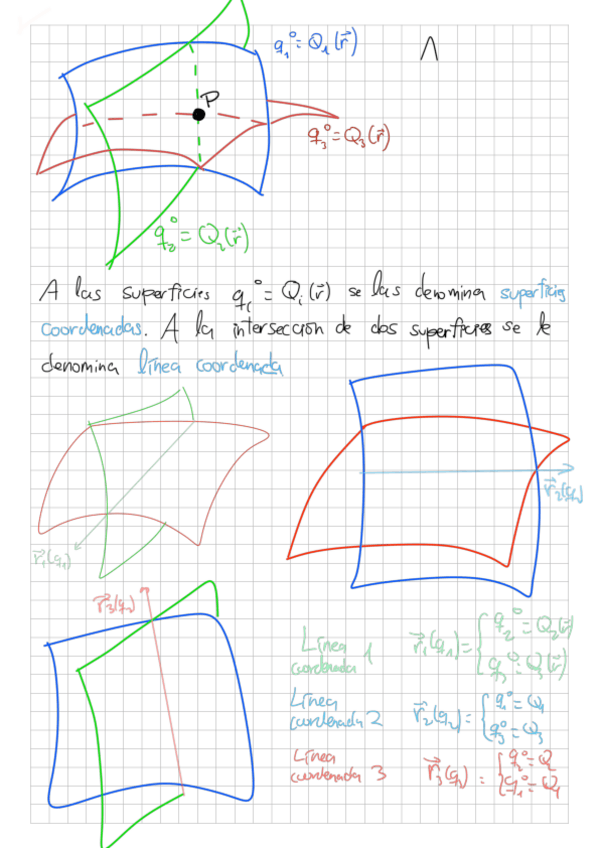 q₁° = Q₁(r⃗)
Λ
P
q₃° = Q₃(r⃗)
q₂° = Q₂(r⃗)
A las superficies qᵢ° = Qᵢ(r⃗) se las denomina superficies
coordenadas. A la intersección de dos superficies se le
denomina línea coordenada
r⃗₂(q₂)
r⃗₁(q₁)
r⃗₃(q₃)
Línea coordenada 1 r⃗₁(q₁) = { q₂° = Q₂(r⃗)
q₃° = Q₃(r⃗)
Línea coordenada 2 r⃗₂(q₂) = { q₁° = Q₁
q₃° = Q₃
Línea coordenada 3 r⃗₃(q₃) = { q₂° = Q
q₁° = Q₁